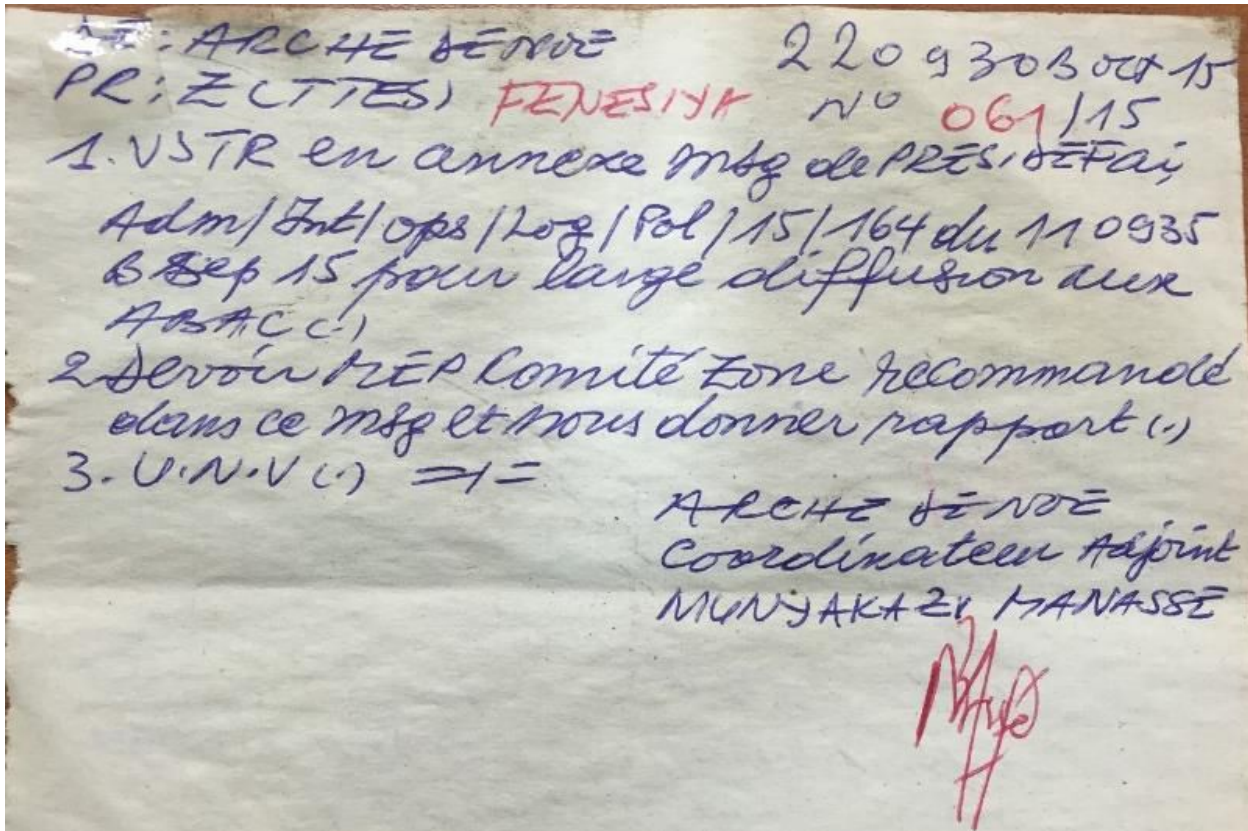 DE : ARCHE DE NOE 220930B oct 15
PR : Z (TTES) FENESIYA N° 061/15
1. VSTR en annexe msg de PRESI DEFAI,
Adm/Int/ops/Log/Pol/15/164 du 110935
B Sep 15 pour large diffusion aux
ABACC (.)
2 Devoir MEP Comité Zone recommandé
dans ce msg et nous donner rapport (.)
3. U.N.V (.)
ARCHE DE NOE
Coordinateur Adjoint
MUNYAKAZI MANASSE